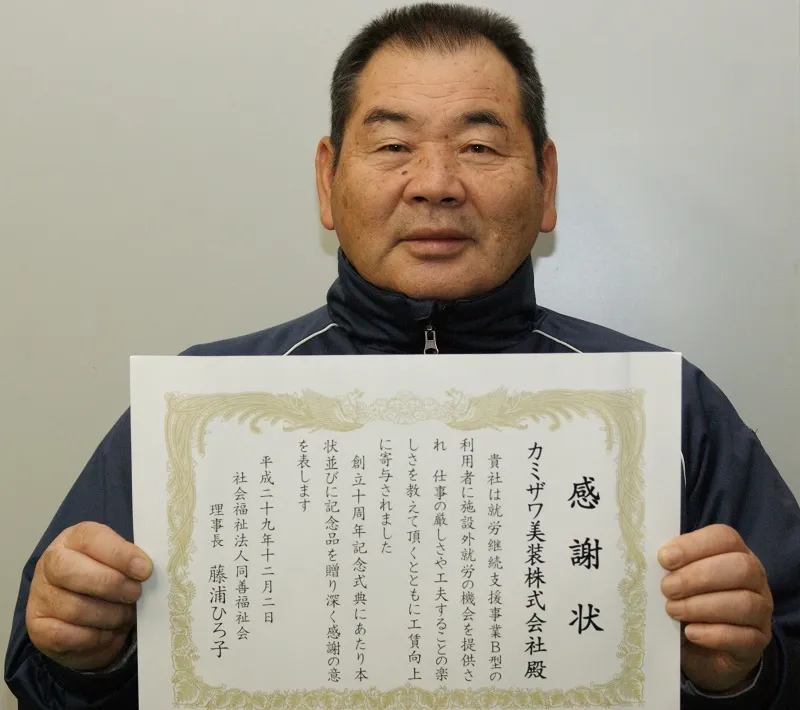 感謝状
カミザワ美装株式会社 殿
貴社は就労継続支援事業B型の
利用者に施設外就労の機会を提供さ
れ 仕事の厳しさや工夫することの楽
しさを教えて頂くとともに工賃向上
に寄与されました
創立十周年記念式典にあたり本
状並びに記念品を贈り深く感謝の意
を表します
平成二十九年十二月二日
社会福祉法人同善福祉会
理事長 藤浦ひろ子